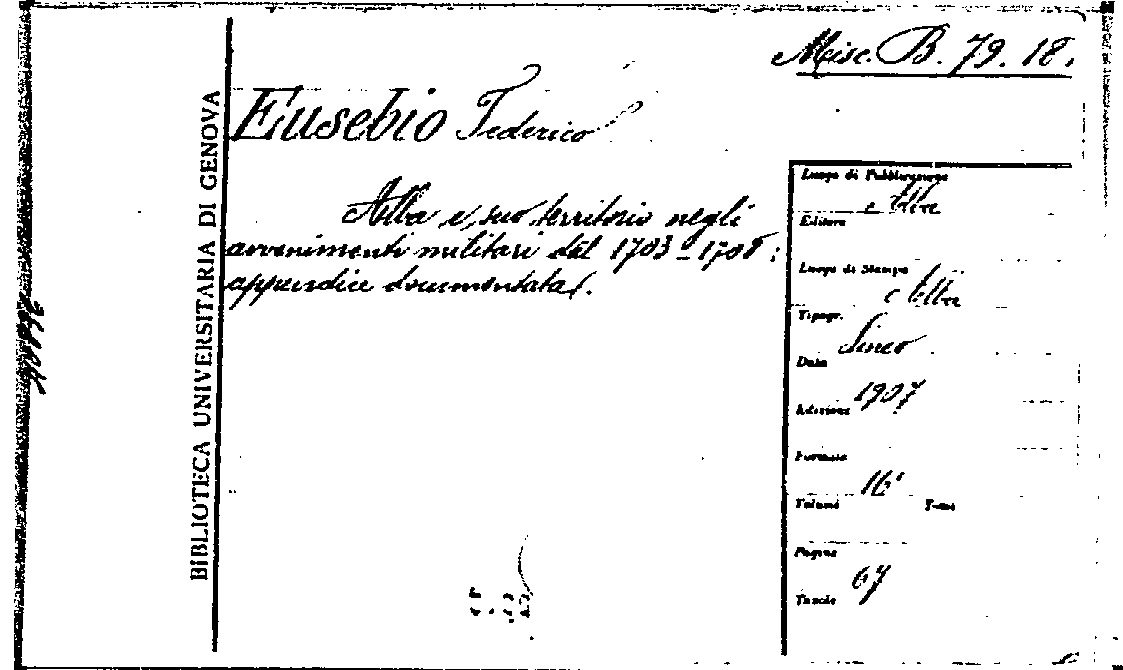 Misc. B. 79. 18.
Eusebio Federico
Alba e suo territorio negli
avvenimenti militari dal 1703-1708:
appendice documentata.
BIBLIOTECA UNIVERSITARIA DI GENOVA
Luogo di Pubblicazione
Alba
Editore
Luogo di Stampa
Alba
Tipogr.
Sineo
Data
1907
Edizione
Formato
16°
Volumi Tomi
Pagine
67
Tavole